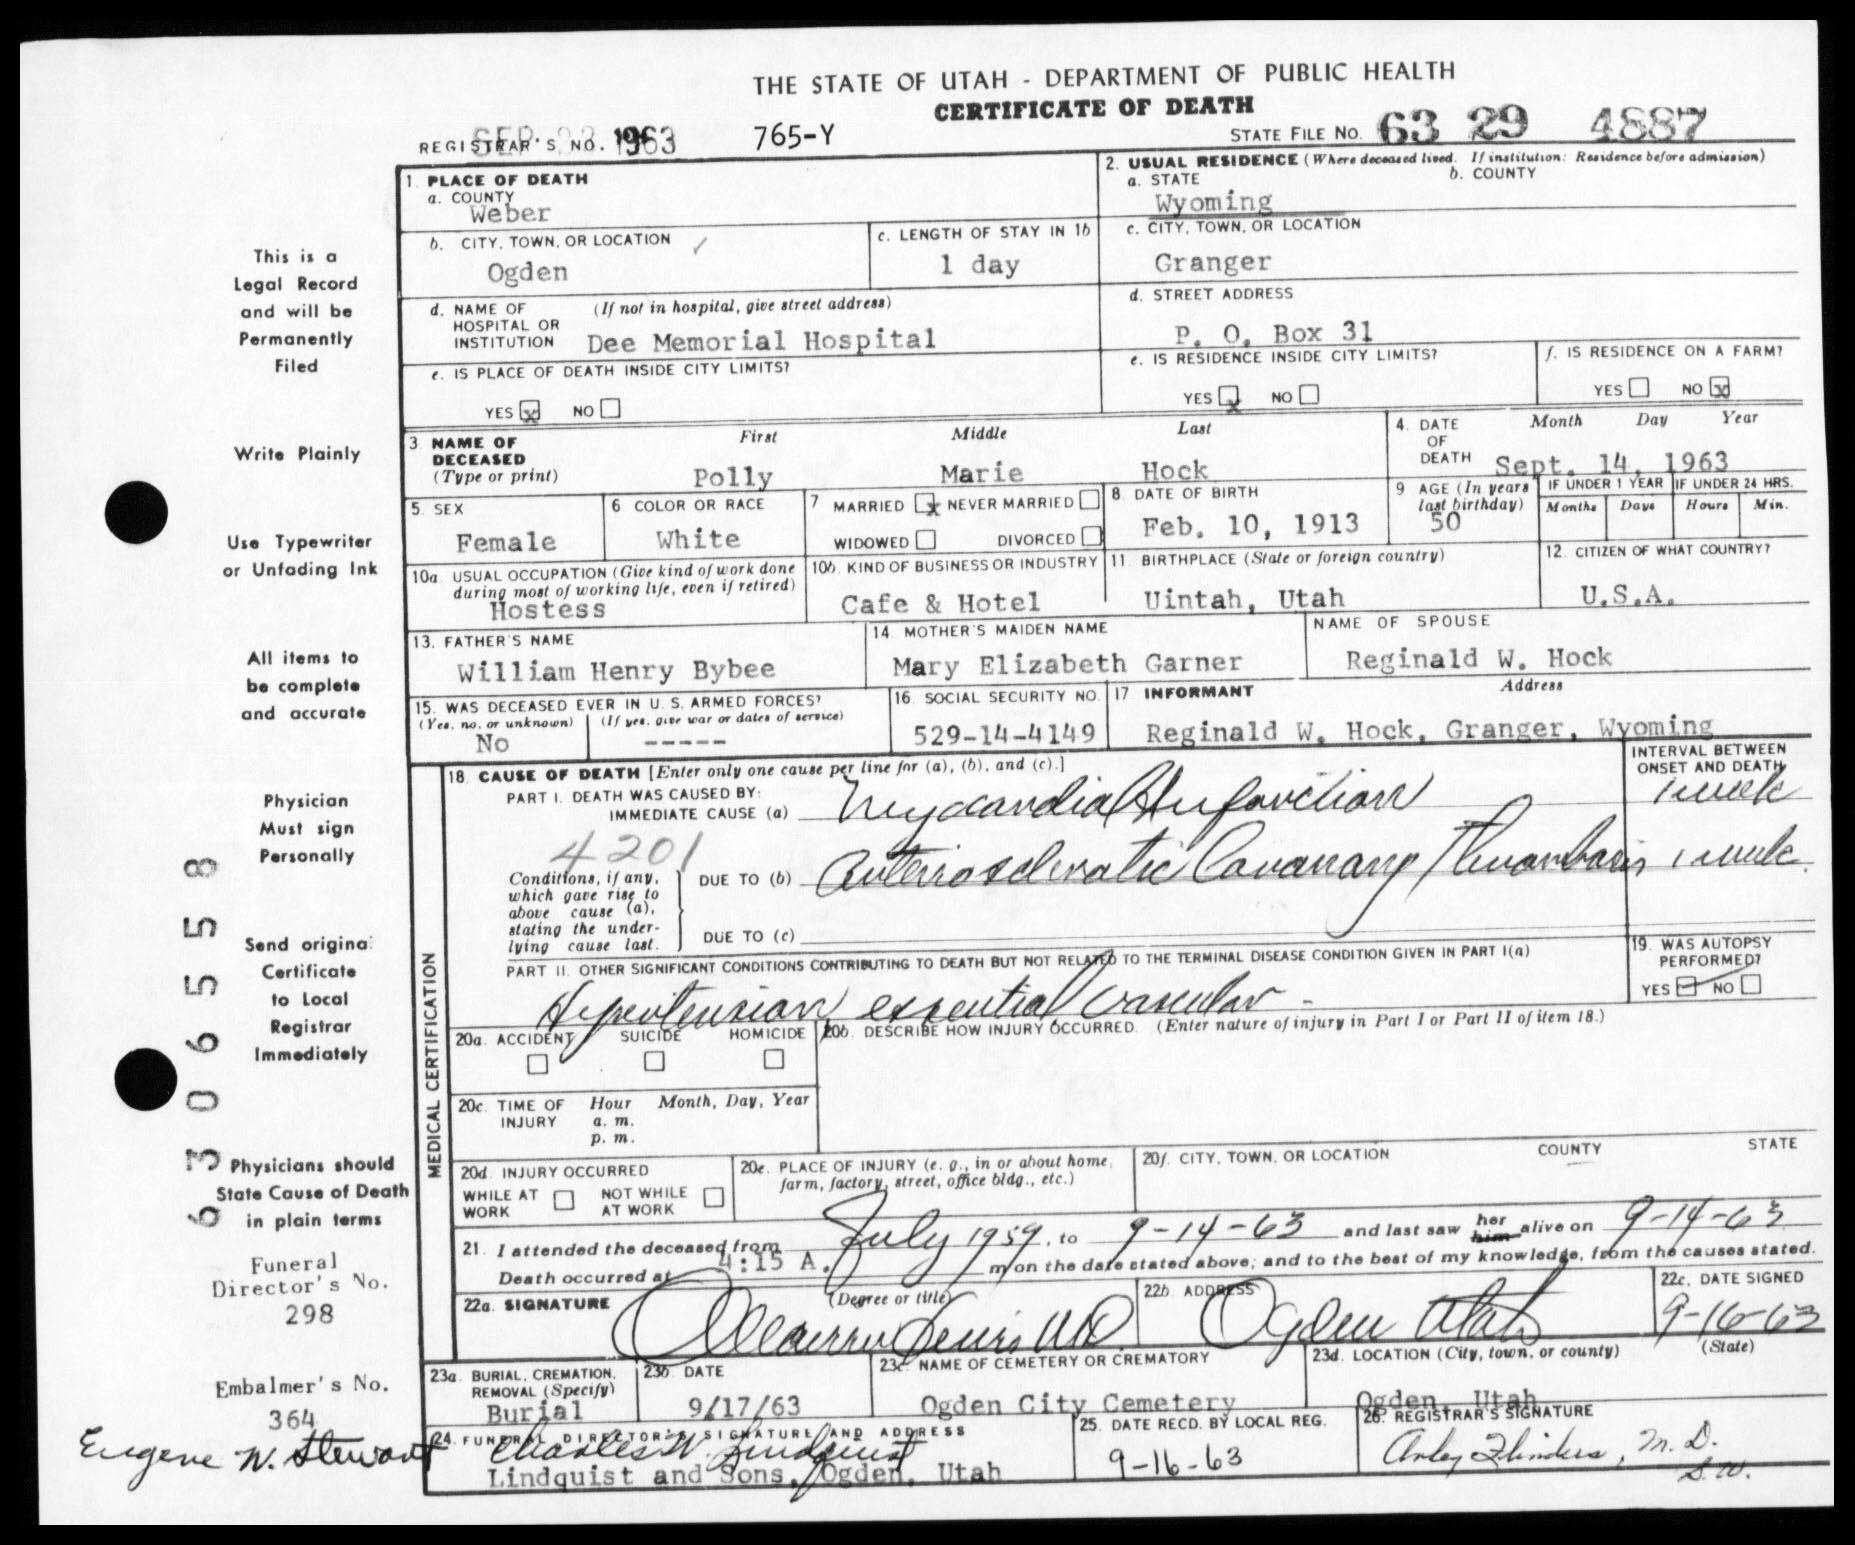 THE STATE OF UTAH - DEPARTMENT OF PUBLIC HEALTH
CERTIFICATE OF DEATH
REGISTRAR'S NO. SEP 23 1963 765-Y STATE FILE NO. 63 29 4887
1. PLACE OF DEATH
a. COUNTY
Weber
2. USUAL RESIDENCE (Where deceased lived. If institution: Residence before admission)
a. STATE b. COUNTY
Wyoming
b. CITY, TOWN, OR LOCATION
Ogden
c. LENGTH OF STAY IN 1b
1 day
c. CITY, TOWN, OR LOCATION
Granger
d. NAME OF HOSPITAL OR INSTITUTION (If not in hospital, give street address)
Dee Memorial Hospital
d. STREET ADDRESS
P. O. Box 31
e. IS PLACE OF DEATH INSIDE CITY LIMITS?
YES x NO
e. IS RESIDENCE INSIDE CITY LIMITS?
YES x NO
f. IS RESIDENCE ON A FARM?
YES NO x
3. NAME OF DECEASED (Type or print)
First Middle Last
Polly Marie Hock
4. DATE OF DEATH Month Day Year
Sept. 14, 1963
5. SEX
Female
6 COLOR OR RACE
White
7 MARRIED x NEVER MARRIED
WIDOWED DIVORCED
8. DATE OF BIRTH
Feb. 10, 1913
9 AGE (In years last birthday)
50
IF UNDER 1 YEAR IF UNDER 24 HRS.
Months Days Hours Min.
10a. USUAL OCCUPATION (Give kind of work done during most of working life, even if retired)
Hostess
10b. KIND OF BUSINESS OR INDUSTRY
Cafe & Hotel
11. BIRTHPLACE (State or foreign country)
Uintah, Utah
12. CITIZEN OF WHAT COUNTRY?
U.S.A.
13. FATHER'S NAME
William Henry Bybee
14. MOTHER'S MAIDEN NAME
Mary Elizabeth Garner
NAME OF SPOUSE
Reginald W. Hock
15. WAS DECEASED EVER IN U. S. ARMED FORCES?
(Yes, no, or unknown) (If yes, give war or dates of service)
No -----
16. SOCIAL SECURITY NO.
529-14-4149
17. INFORMANT Address
Reginald W. Hock, Granger, Wyoming
MEDICAL CERTIFICATION
18. CAUSE OF DEATH [Enter only one cause per line for (a), (b), and (c).]
INTERVAL BETWEEN ONSET AND DEATH
PART I. DEATH WAS CAUSED BY:
IMMEDIATE CAUSE (a) Myocardial Infarction 1 week
4201
Conditions, if any, which gave rise to above cause (a), stating the underlying cause last.
DUE TO (b) Arteriosclerotic Coronary Thrombosis 1 week
DUE TO (c)
PART II. OTHER SIGNIFICANT CONDITIONS CONTRIBUTING TO DEATH BUT NOT RELATED TO THE TERMINAL DISEASE CONDITION GIVEN IN PART I(a)
Hypertension essential vascular -
19. WAS AUTOPSY PERFORMED?
YES NO
20a. ACCIDENT SUICIDE HOMICIDE
20b. DESCRIBE HOW INJURY OCCURRED. (Enter nature of injury in Part I or Part II of item 18.)
20c. TIME OF INJURY Hour a. m. p. m. Month, Day, Year
20d. INJURY OCCURRED
WHILE AT WORK NOT WHILE AT WORK
20e. PLACE OF INJURY (e. g., in or about home, farm, factory, street, office bldg., etc.)
20f. CITY, TOWN, OR LOCATION COUNTY STATE
21. I attended the deceased from July 1959, to 9-14-63 and last saw her him alive on 9-14-63
Death occurred at 4:15 A. m on the date stated above; and to the best of my knowledge, from the causes stated.
22a. SIGNATURE (Degree or title)
MD
22b. ADDRESS
Ogden Utah
22c. DATE SIGNED
9-16-63
23a. BURIAL, CREMATION, REMOVAL (Specify)
Burial
23b. DATE
9/17/63
23c. NAME OF CEMETERY OR CREMATORY
Ogden City Cemetery
23d. LOCATION (City, town, or county) (State)
Ogden, Utah
24. FUNERAL DIRECTOR'S SIGNATURE AND ADDRESS
Charles W. Lindquist
Lindquist and Sons, Ogden, Utah
25. DATE RECD. BY LOCAL REG.
9-16-63
26. REGISTRAR'S SIGNATURE
Flinders, M. D.
This is a
Legal Record
and will be
Permanently
Filed
Write Plainly
Use Typewriter
or Unfading Ink
All items to
be complete
and accurate
Physician
Must sign
Personally
Send original
Certificate
to Local
Registrar
Immediately
Physicians should
State Cause of Death
in plain terms
Funeral
Director's No.
298
Embalmer's No.
364
Eugene W. Stewart
6306558